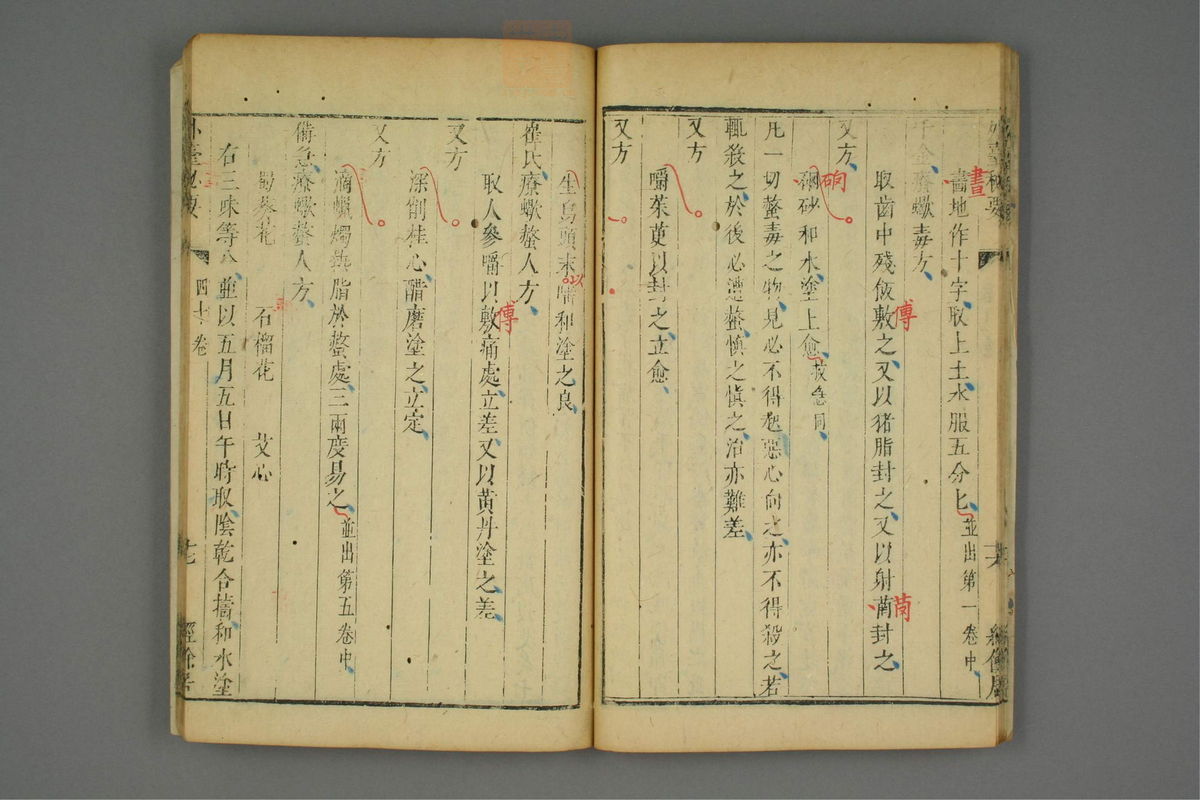 畵地作十字取上土水服五分匕並出第一卷中
千金療蠍毒方
取齒中殘飯敷之又以猪脂封之又以射菵封之
又方
硇砂和水塗上愈救急同
凡一切螫毒之物見必不得起惡心向之亦不得殺之若
輒殺之於後必遭螫慎之慎之治亦難差
又方
嚼茱萸以封之立愈
又方
生烏頭末嚼和塗之良
崔氏療蠍螫人方
取人參嚼以敷痛處立差又以黃丹塗之差
又方
深削桂心醋磨塗之立定
又方
滴蠟燭熱脂於螫處三兩度易之並出第五卷中
備急療蠍螫人方
蜀葵花 石榴花 艾心
右三味等分並以五月五日午時取陰乾合擣和水塗
外臺秘要 四十卷 十七 經餘居